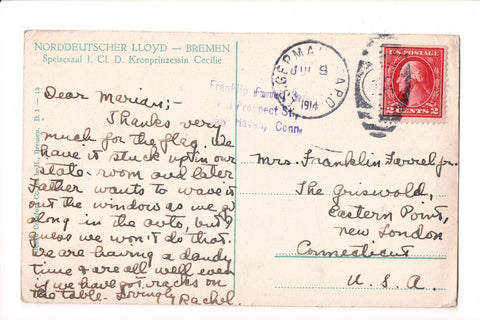 NORDDEUTSCHER LLOYD — BREMEN
Speisesaal I. Cl. D. Kronprinzessin Cecilie
Dear Marian:-
Thanks very
much for the flag. We
have it stuck up in our
state-room and later
Father wants to wave it
out the window as we go
along in the auto, but I
guess we won't do that.
We are having a dandy
time & are all well even
if we have got racks on
the table. Lovingly Rachel.
GERMAN
A.P.O.
JUL 9
1914
Franklin Farrel
Prospect St.
Haven, Conn.
U.S. POSTAGE
2 CENTS 2
Mrs. Franklin Farrel jr.
The Griswold,
Eastern Point,
New London
Connecticut
U. S. A.